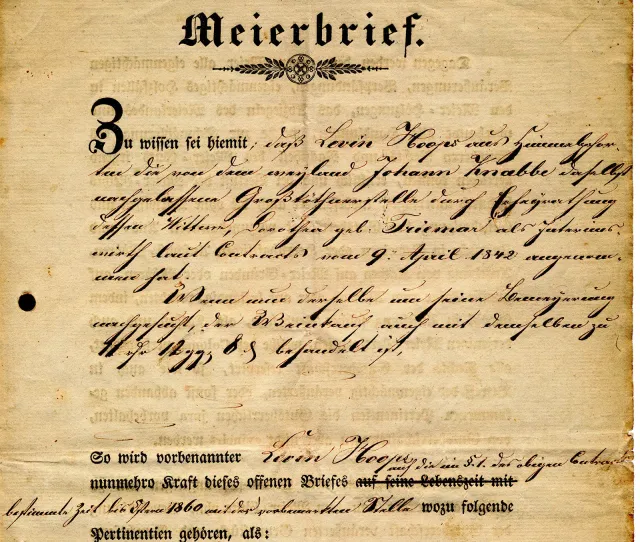 Meierbrief.
Zu wissen sei hiemit, daß Levin Hoops aus Himmelpfor-
ten die von dem weyland Johann Knabbe daselbst
nachgelassene Großköthnerstelle durch Ehegrathung
dessen Wittwe, Dorothea geb. Friemar als Interims-
wirth laut Contracts vom 9. April 1842 angenom-
men hat.
Wenn nun derselbe um seine Bemeyerung
nachgesucht, der Weinkauf auch mit demselben zu
12 ggr 8 ₰ behandelt ist,
So wird vorbenannter Levin Hoops
auf die im §. 1. des obigen Contracts
nunmehro Kraft dieses offenen Briefes auf seine Lebenszeit mit
bestimmte Zeit bis Ostern 1860 mit der vorbemerkten Stelle wozu folgende
Pertinentien gehören, als: